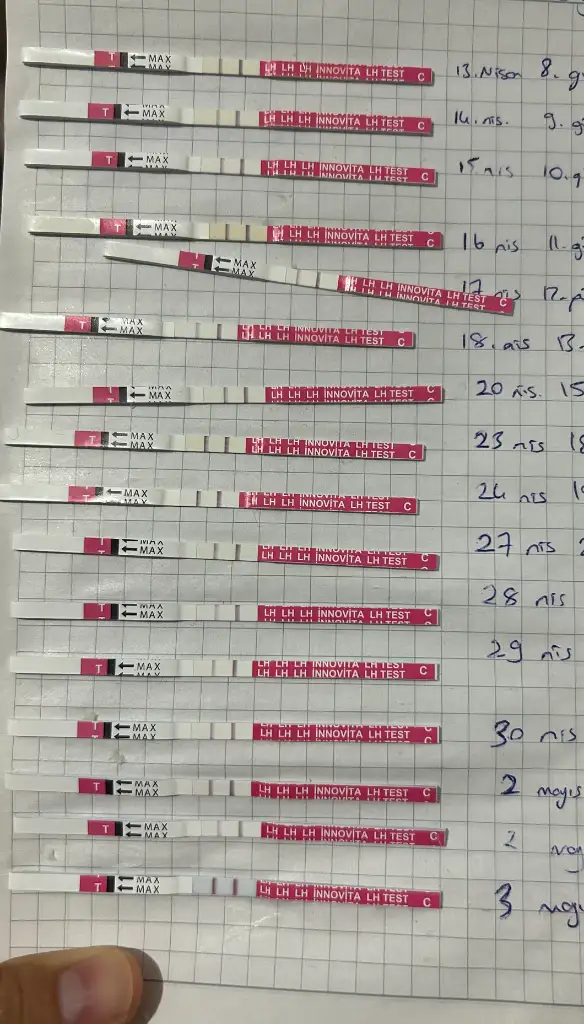 T MAX MAX LH LH LH INNOVITA LH TEST C 13. Nisan 8. g
T MAX MAX LH LH LH INNOVITA LH TEST C 14. nis. 9. g
T MAX MAX LH LH LH INNOVITA LH TEST C 15 nis 10. g
T MAX LH LH LH INNOVITA LH TEST C 16 nis 11. g
T MAX LH LH LH INNOVITA LH TEST C 17 nis 12.
T MAX MAX LH LH LH INNOVITA LH TEST C 18. nis 13.
T MAX LH LH LH INNOVITA LH TEST C 20 nis. 15
T MAX MAX LH LH LH INNOVITA LH TEST C 23 nis 18
T MAX MAX LH LH LH INNOVITA LH TEST C 24 nis 1
T MAX MAX LH LH LH INNOVITA LH TEST C 27 nis 2
T MAX MAX LH LH LH INNOVITA LH TEST C 28 nis
T MAX MAX LH LH LH INNOVITA LH TEST C 29 nis
T MAX MAX LH LH LH INNOVITA LH TEST C 30 nis
T MAX MAX LH LH LH INNOVITA LH TEST C 2 mayıs
T MAX MAX LH LH LH INNOVITA LH TEST C 2 may
T MAX MAX LH LH LH INNOVITA LH TEST C 3 may